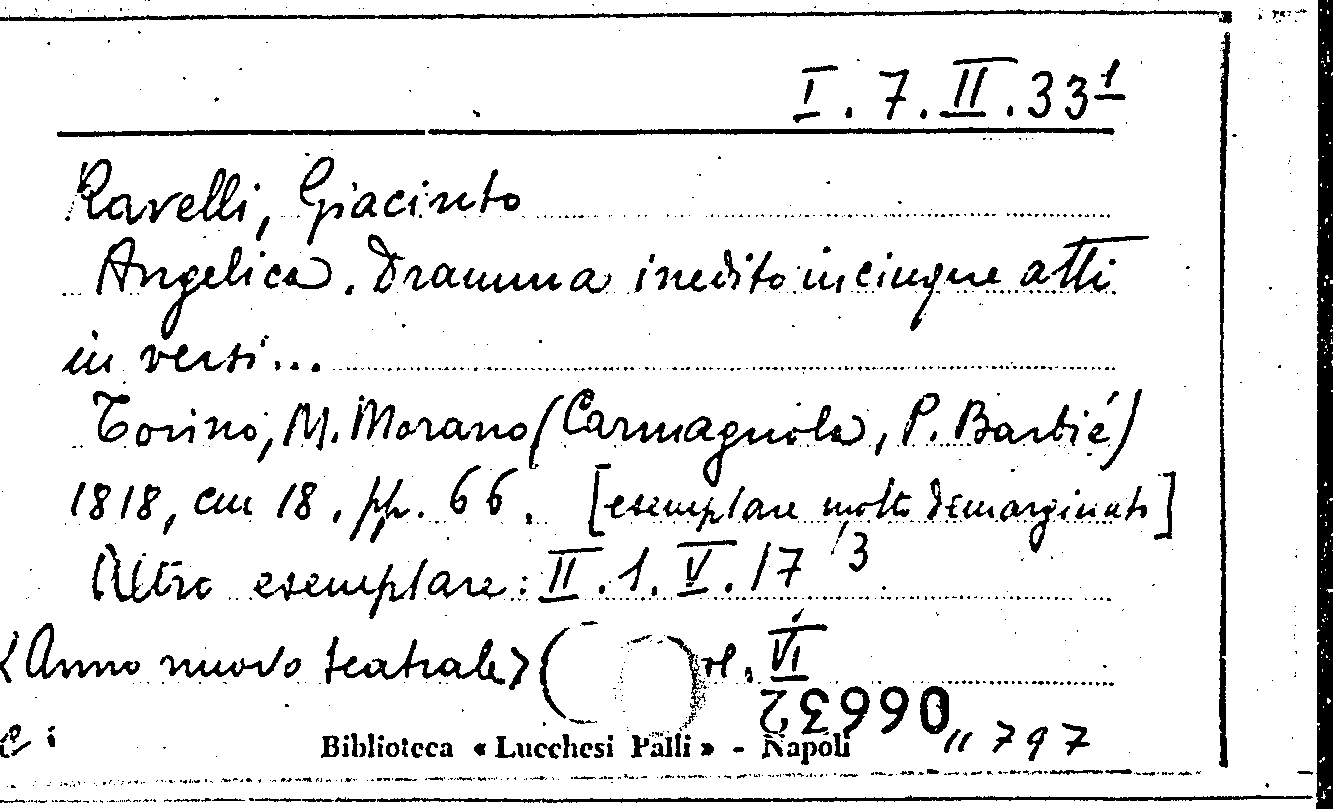 I. 7. II. 33 1
Ravelli, Giacinto
Angelica. Dramma inedito in cinque atti
in versi...
Torino, M. Morano (Carmagnola, P. Barbié)
1818, cm 18, pp. 66. [esemplare molto demarginato]
Altro esemplare: II. 1. V. 17 /3
<Anno nuovo teatrale> ( vol. VI
06632
Biblioteca « Lucchesi Palli » - Napoli " 797